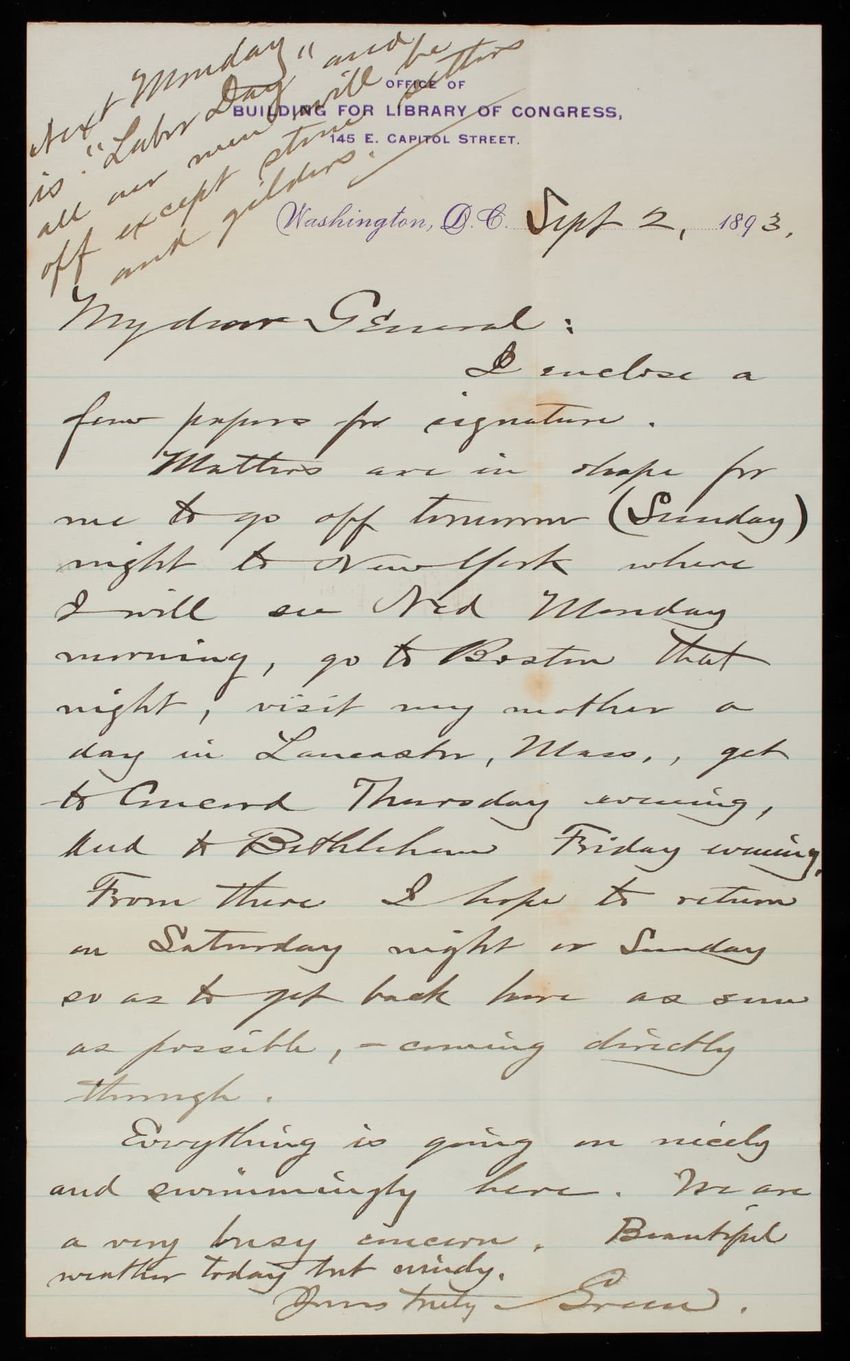 Next Monday
is "Labor Day" and
all our men will be
off except stone setters
and gilders.
OFFICE OF
BUILDING FOR LIBRARY OF CONGRESS,
145 E. CAPITOL STREET.
Washington, D.C. Sept 2, 1893.
My dear General:
I enclose a
few papers for signature.
Matters are in shape for
me to go off tomorrow (Sunday)
night to New York where
I will see Ned Monday
morning, go to Boston that
night, visit my mother a
day in Lancaster, Mass., get
to Concord Thursday evening,
and to Bethlehem Friday evening.
From there I hope to return
on Saturday night or Sunday
so as to get back here as soon
as possible, - coming directly
through.
Everything is going on nicely
and swimmingly here. We are
a very busy concern. Beautiful
weather today but windy.
Yours truly - Green.